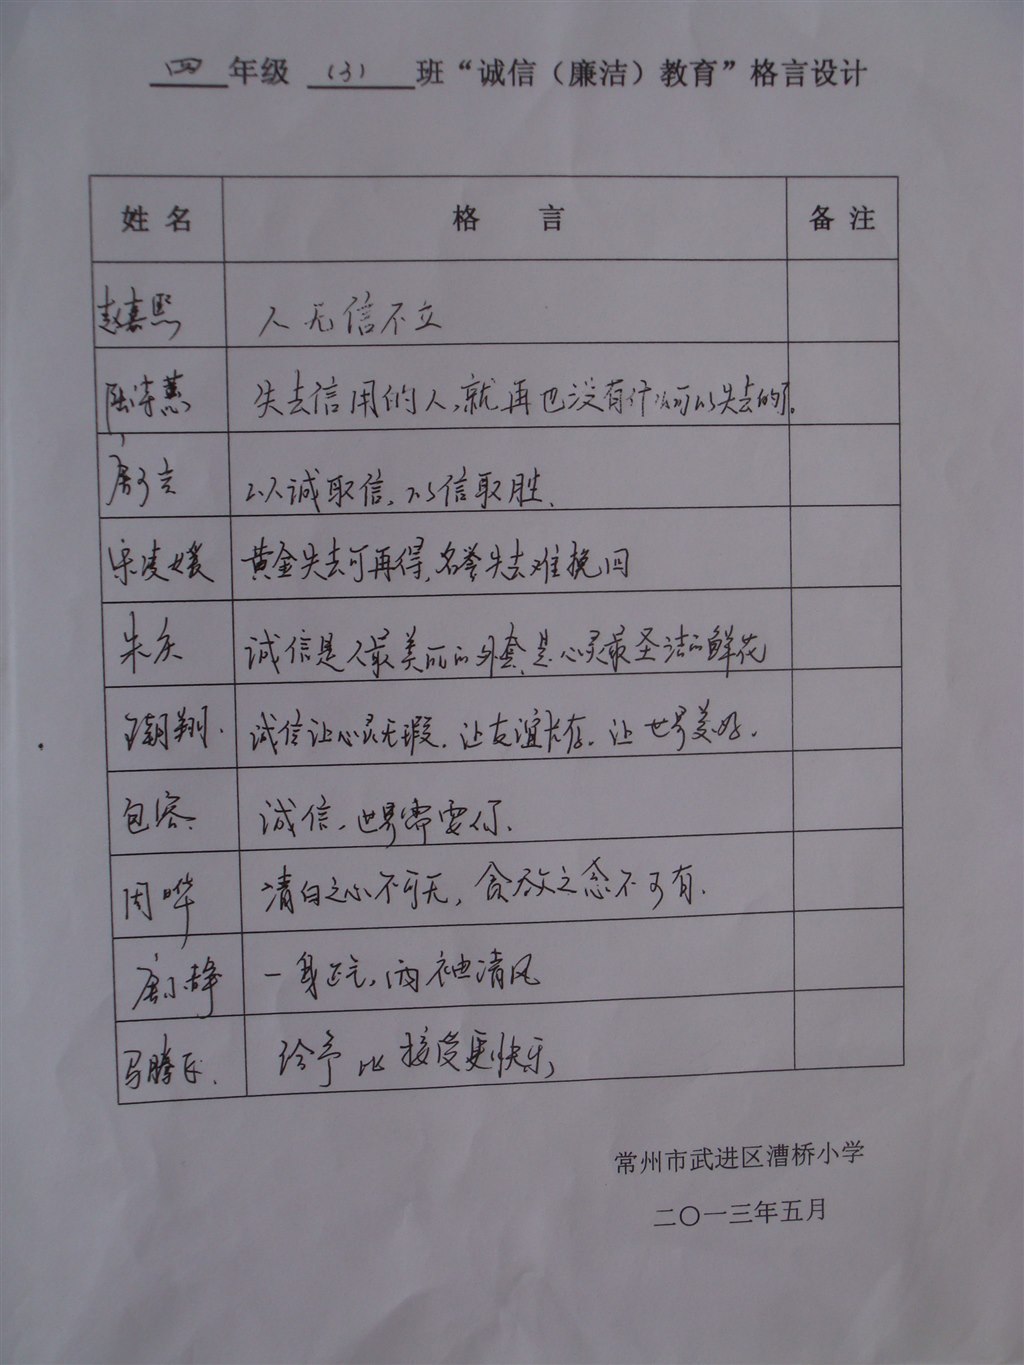 四 年级 (3) 班“诚信（廉洁）教育”格言设计
姓 名 格 言 备 注
赵嘉熙 人无信不立
陆诗蕙 失去信用的人,就再也没有什么可以失去的了.
唐可言 以诚取信,以信取胜.
宋凌媛 黄金失去可再得,名誉失去难挽回
朱庆 诚信是人最美丽的外套,是心灵最圣洁的鲜花
朝翔. 诚信让心灵无瑕.让友谊长存.让世界美好.
包容. 诚信,世界需要你.
周晔 清白之心不可无,贪 之念不可有.
唐小静 一身正气,两袖清风
马腾 . 给予比接受更快乐,
常州市武进区漕桥小学
二〇一三年五月